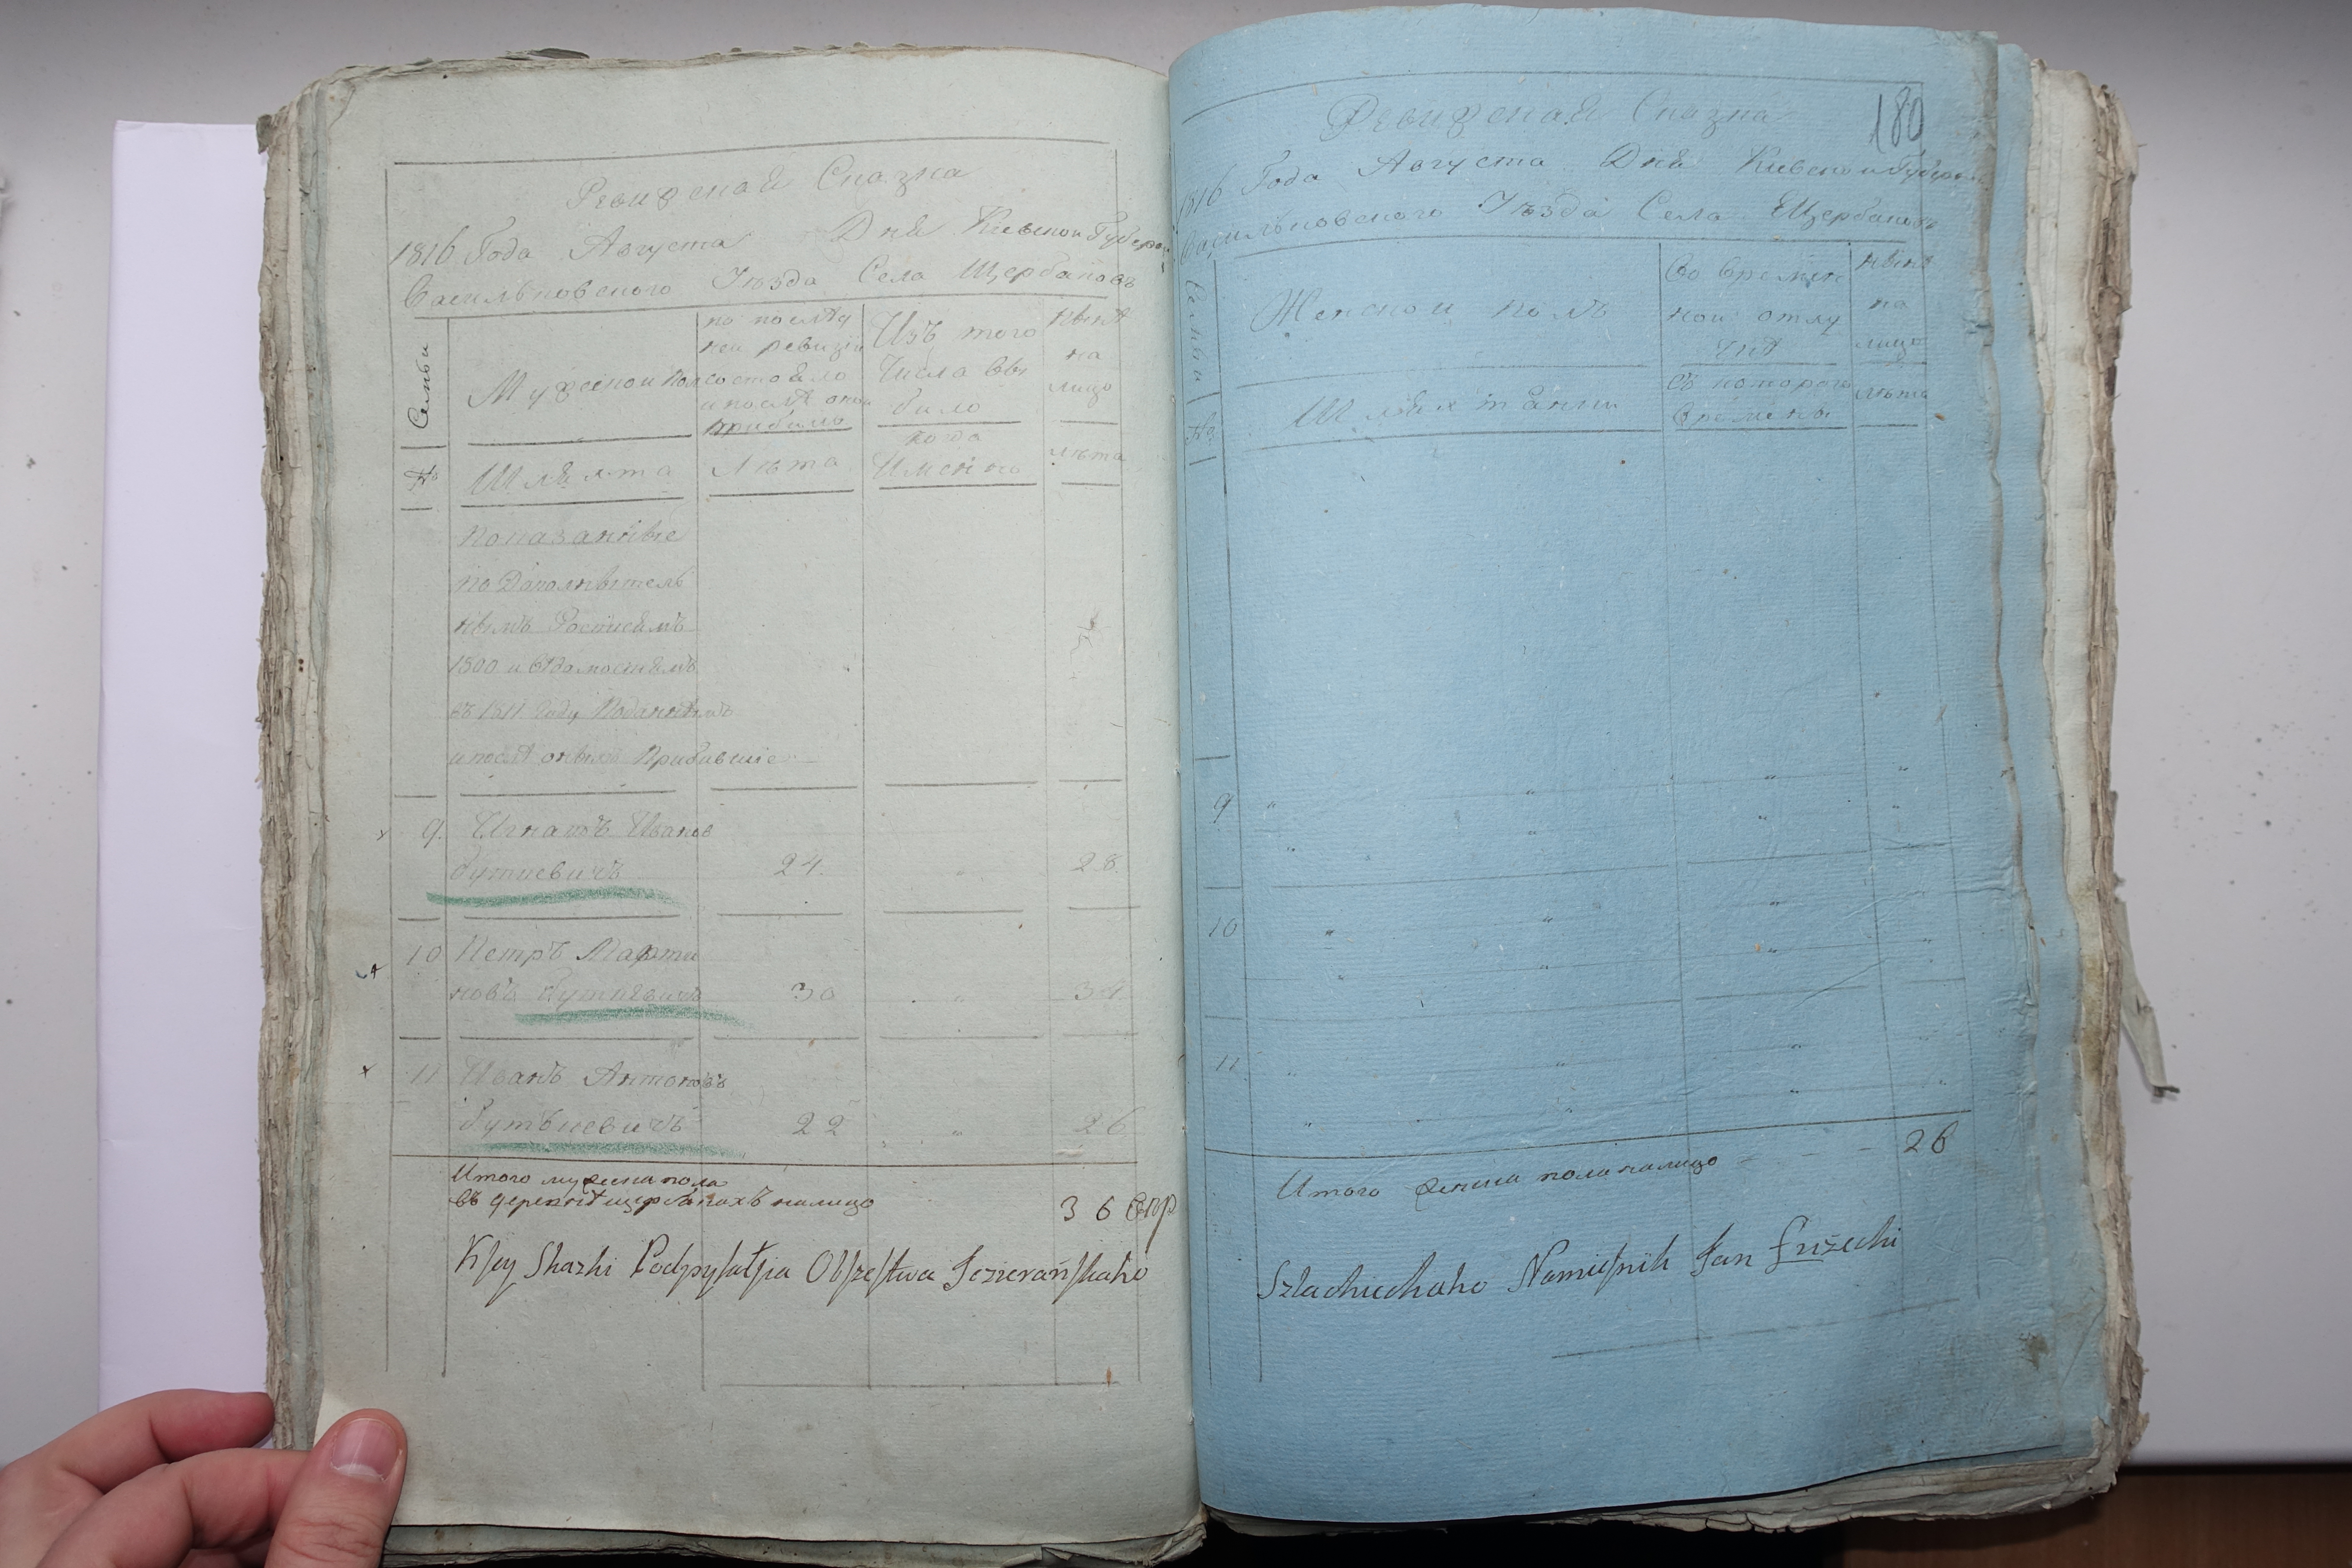 Ревизская Сказка
1816 Года Августа Дня Киевской Губернии
Васильковского Уѣзда Села Щербаковъ
Семьи
Мужескои Полъ
по послѣд
ней ревизіи
состояло
и послѣ оной
прибыло
Изъ того
Числа вы
было
Нынѣ
на
лицо
№
Шляхта
Лѣта
когда
Имѣнно
лѣта
показанные
по Дополнѣтель
нымъ Росписямъ
1800 и вѣдомостямъ
въ 1811 Году Поданнымъ
и послѣ оныхъ Прибывшіе
9. Игнатъ Иванов
Буткевичъ 24. 28.
10 Петръ Марти
новъ Буткѣвичъ 30 34
11 Иванъ Антоновъ
Бутькевичъ 22 26
Итого мужеска пола
въ деревнѣ щербакахъ налицо 36
K sey Skazki Podpysałsia Obszestwa Jezierańskaho
180
Ревизская Сказка
1816 Года Августа Дня Киевскои Губернии
Васильковского Уѣзда Села Щербаковъ
Семьи
Женскои полъ
Во времен
нои отлу
чкѣ
Нынѣ
на
лицо
№
Шляхтянки
Съ которого
Времены
лѣта
9
10
11
Итого женска пола налицо - - - 26
Szlachechaho Namiesnik Jan